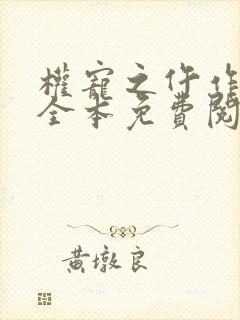 權寵之仵作
全本免費閱
黃墩良